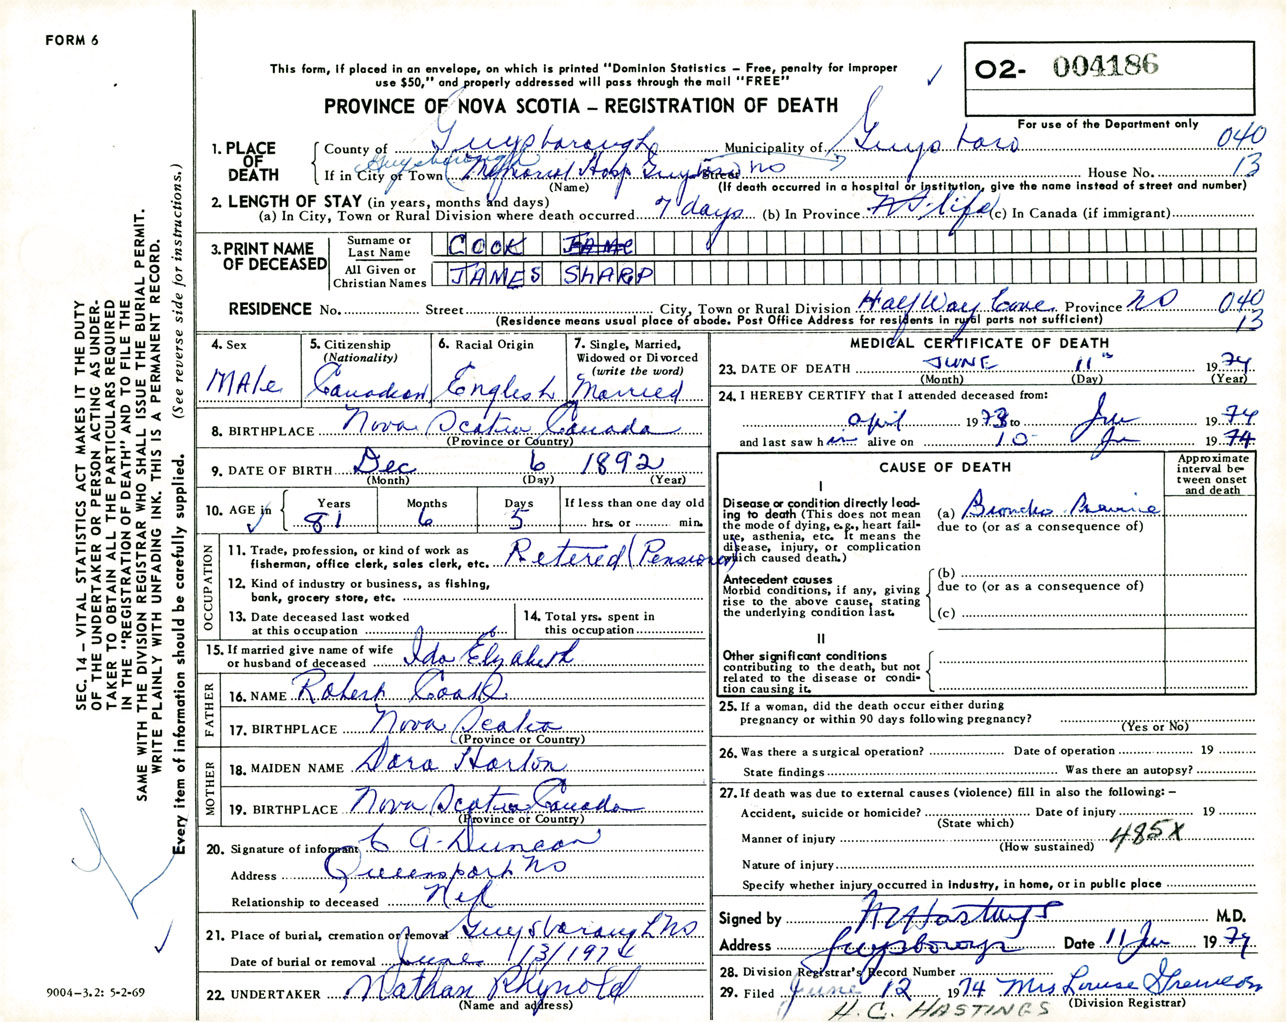 FORM 6
This form, if placed in an envelope, on which is printed "Dominion Statistics – Free, penalty for improper
use $50," and properly addressed will pass through the mail "FREE"
PROVINCE OF NOVA SCOTIA – REGISTRATION OF DEATH
O2- 004186
For use of the Department only
040
13
1. PLACE OF DEATH
County of Guysborough Municipality of Guysboro
Guysborough
If in City or Town (Memorial Hosp Street NS House No.
(Name) (If death occurred in a hospital or institution, give the name instead of street and number)
2. LENGTH OF STAY (in years, months and days)
(a) In City, Town or Rural Division where death occurred 7 days (b) In Province life (c) In Canada (if immigrant)
3. PRINT NAME OF DECEASED
Surname or Last Name COOK
All Given or Christian Names JAMES SHARP
RESIDENCE No. Street City, Town or Rural Division Half Way Cove Province NS 040
(Residence means usual place of abode. Post Office Address for residents in rural parts not sufficient) 13
4. Sex
Male
5. Citizenship
(Nationality)
Canadian
6. Racial Origin
English
7. Single, Married,
Widowed or Divorced
(write the word)
Married
8. BIRTHPLACE Nova Scotia Canada
(Province or Country)
9. DATE OF BIRTH Dec 6 1892
(Month) (Day) (Year)
10. AGE in Years Months Days If less than one day old
81 6 5 hrs. or min.
OCCUPATION
11. Trade, profession, or kind of work as
fisherman, office clerk, sales clerk, etc. Retered (Pensioner)
12. Kind of industry or business, as fishing,
bank, grocery store, etc.
13. Date deceased last worked
at this occupation
14. Total yrs. spent in
this occupation
15. If married give name of wife
or husband of deceased Ida Elzabeth
FATHER
16. NAME Robert Cook
17. BIRTHPLACE Nova Scotia
(Province or Country)
MOTHER
18. MAIDEN NAME Dora Horton
19. BIRTHPLACE Nova Scotia Canada
(Province or Country)
20. Signature of informant A. Duncan
Address Queensport NS
Relationship to deceased
21. Place of burial, cremation or removal Guysborough NS
Date of burial or removal June 13/1974
22. UNDERTAKER Nathan Rhynold
(Name and address)
MEDICAL CERTIFICATE OF DEATH
23. DATE OF DEATH JUNE 11th 1974
(Month) (Day) (Year)
24. I HEREBY CERTIFY that I attended deceased from:
April 1973 to Jun 1974
and last saw him alive on 10 Jun 1974
CAUSE OF DEATH
Approximate
interval be-
tween onset
and death
I
Disease or condition directly lead-
ing to death (This does not mean
the mode of dying, e.g., heart fail-
ure, asthenia, etc. It means the
disease, injury, or complication
which caused death.)
(a) Broncho
due to (or as a consequence of)
Antecedent causes
Morbid conditions, if any, giving
rise to the above cause, stating
the underlying condition last.
(b)
due to (or as a consequence of)
(c)
II
Other significant conditions
contributing to the death, but not
related to the disease or condi-
tion causing it.
25. If a woman, did the death occur either during
pregnancy or within 90 days following pregnancy?
(Yes or No)
26. Was there a surgical operation? Date of operation 19
State findings Was there an autopsy?
27. If death was due to external causes (violence) fill in also the following: –
Accident, suicide or homicide? Date of injury 19
(State which)
Manner of injury 485X
(How sustained)
Nature of injury
Specify whether injury occurred in industry, in home, or in public place
Signed by Hastings M.D.
Address Guysborough Date 11 Jun 1974
28. Division Registrar's Record Number
29. Filed June 12 1974 Mrs Louise
(Division Registrar)
H.C. HASTINGS
SEC. 14 – VITAL STATISTICS ACT MAKES IT THE DUTY
OF THE UNDERTAKER OR PERSON ACTING AS UNDER-
TAKER TO OBTAIN ALL THE PARTICULARS REQUIRED
IN THE "REGISTRATION OF DEATH" AND TO FILE THE
SAME WITH THE DIVISION REGISTRAR WHO SHALL ISSUE THE BURIAL PERMIT.
WRITE PLAINLY WITH UNFADING INK. THIS IS A PERMANENT RECORD.
Every item of information should be carefully supplied. (See reverse side for instructions.)
9004-3.2: 5-2-69